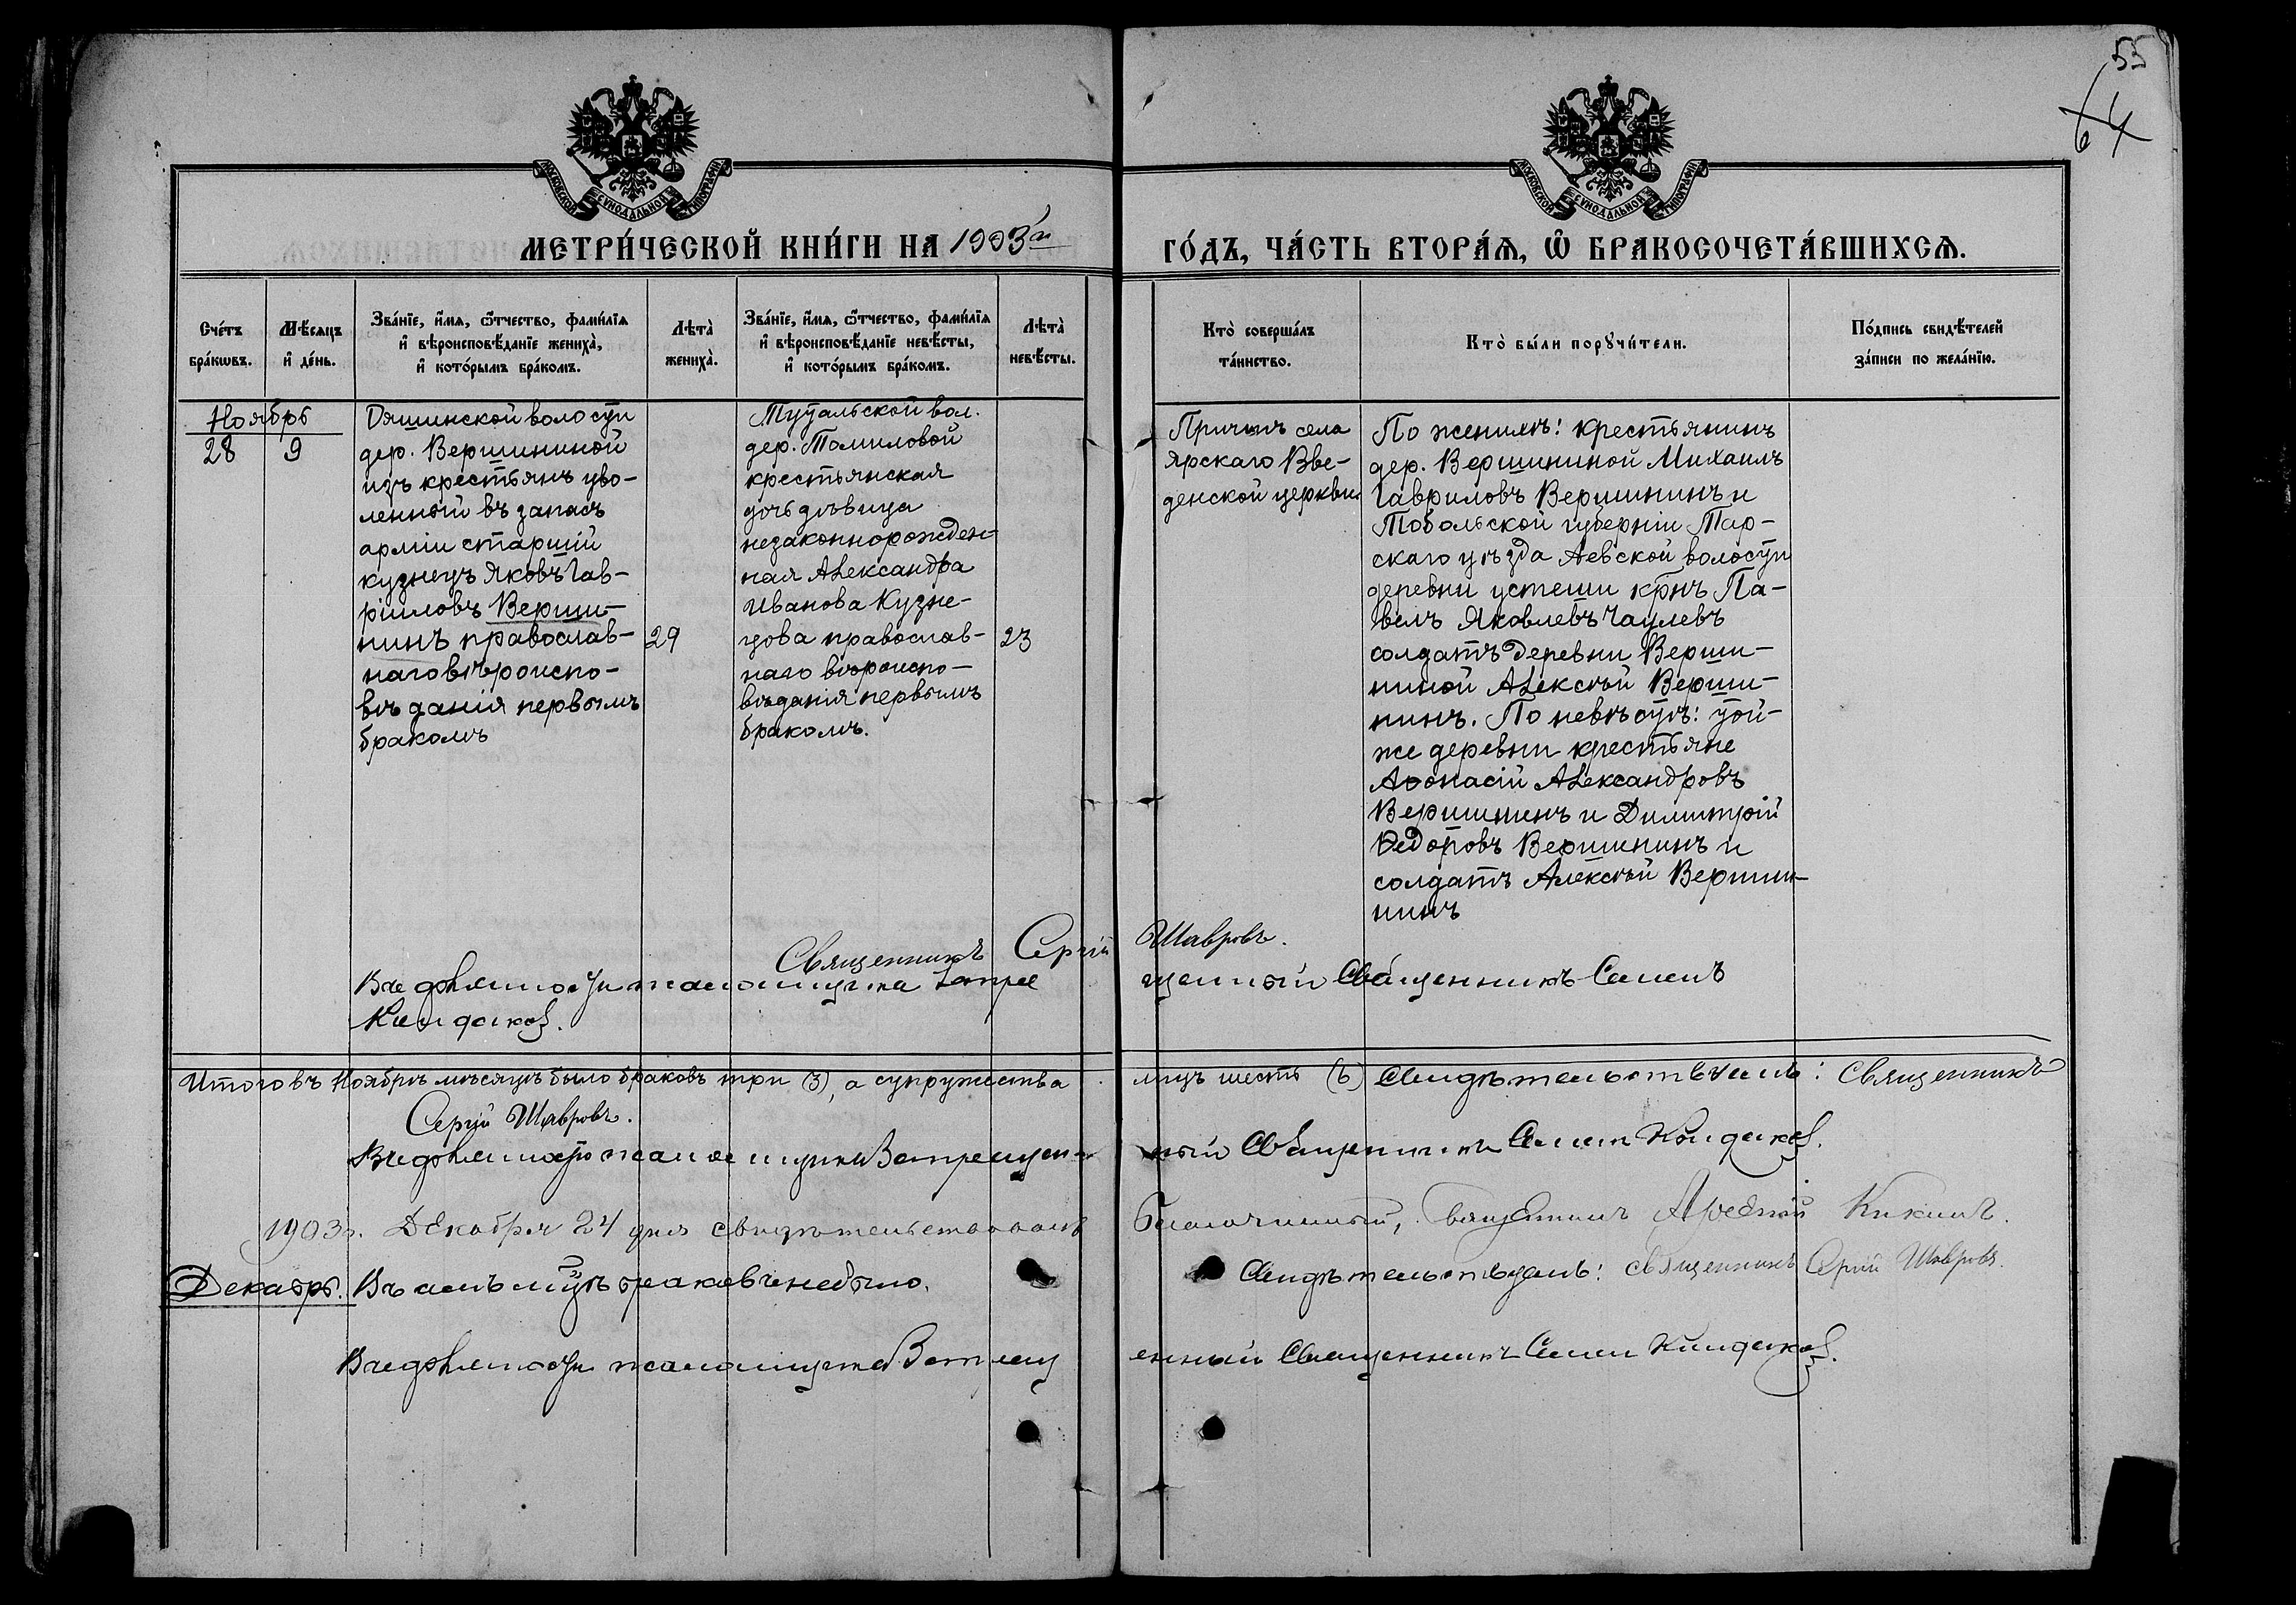 55
64
МОСКОВСКОЙ СѴНОДАЛЬНОЙ ТИПОГРАФІИ
МОСКОВСКОЙ СѴНОДАЛЬНОЙ ТИПОГРАФІИ
МЕТРИ́ЧЕСКОЙ КНИ́ГИ НА 1903й
ГО́ДЪ, ЧА́СТЬ ВТОРА́Ѧ, Ѽ БРАКОСОЧЕТА́ВШИХСѦ.
Сче́тъ
бра́кωвъ.
Мѣ́сяцъ
и҆ де́нь.
Зва́нїе, и҆́мѧ, ѻ҆́тчество, фами́лїѧ
и҆ вѣроисповѣ́данїе жениха̀,
и҆ кото́рымъ бра́комъ.
Лѣта̀
жениха̀.
Зва́нїе, и҆́мѧ, ѻ҆́тчество, фами́лїѧ
и҆ вѣроисповѣ́данїе невѣ́сты,
и҆ кото́рымъ бра́комъ.
Лѣта̀
невѣ́сты.
Кто̀ соверша́лъ
та́инство.
Кто̀ бы́ли порꙋчи́тели.
По́дпись свидѣ́телей
за́писи по жела́нїю.
Ноябрь
28
9
Ояшинской волости
дер. Вершининой
изъ крестьянъ уво-
ленной въ запасъ
арміи старшій
кузнецъ Яковъ Гав-
ріиловъ Верши-
нинъ православ-
наго вѣроиспо-
вѣданія первымъ
бракомъ
29
Тутальской вол.
дер. Томиловой
крестьянская
дочь дѣвица
незаконнорожден-
ная Александра
Иванова Кузне-
цова православ-
наго вѣроиспо-
вѣданія первымъ
бракомъ.
23
Причтъ села
Ярскаго Вве-
денской церкви
По женихѣ: крестьянинъ
дер. Вершининой Михаилъ
Гавриловъ Вершининъ и
Тобольской губерніи Тар-
скаго уѣзда Аевской волости
деревни устеши крнъ Па-
велъ Яковлевъ Чаулевъ
солдатъ деревни Верши-
ниной Алексѣй Верши-
нинъ. По невѣстѣ: той-
же деревни крестьяне
Афонасій Александровъ
Вершининъ и Димитрій
Ѳедоровъ Вершининъ и
солдатъ Алексѣй Верши-
нинъ
Священникъ Сергій Шавровъ.
В недолжности псаломщика Запре щенный Священникъ Семенъ
Кондаков.
Итого въ Ноябрѣ мѣсяцѣ было браковъ три (3), а супружества лицъ шесть (6) Свидѣтельствуемъ: Священникъ
Сергій Шавровъ.
В недолжности псаломщика Запрещен- ный Священникъ Семен Кондаков.
1903г. Декабря 24 дня свидѣтельствовалъ Благочинный, Священникъ Арсеній Кикинъ.
Декабрь. Въ семъ мцѣ браковъ небыло. Свидѣтельствуемъ: священникъ Сергій Шавровъ.
В недолжности псаломщика Запрещ енный Священникъ Семен Кондаков.